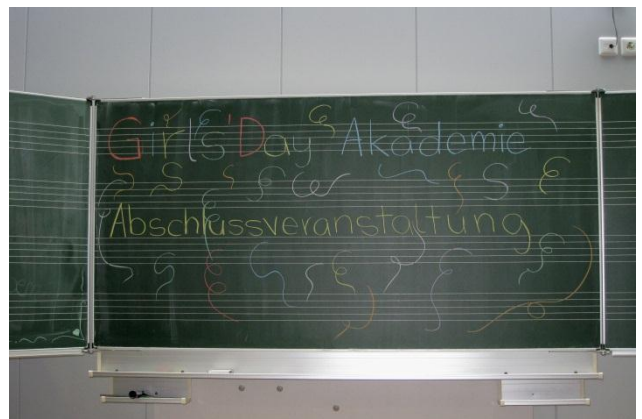 Girls'Day Akademie
Abschlussveranstaltung